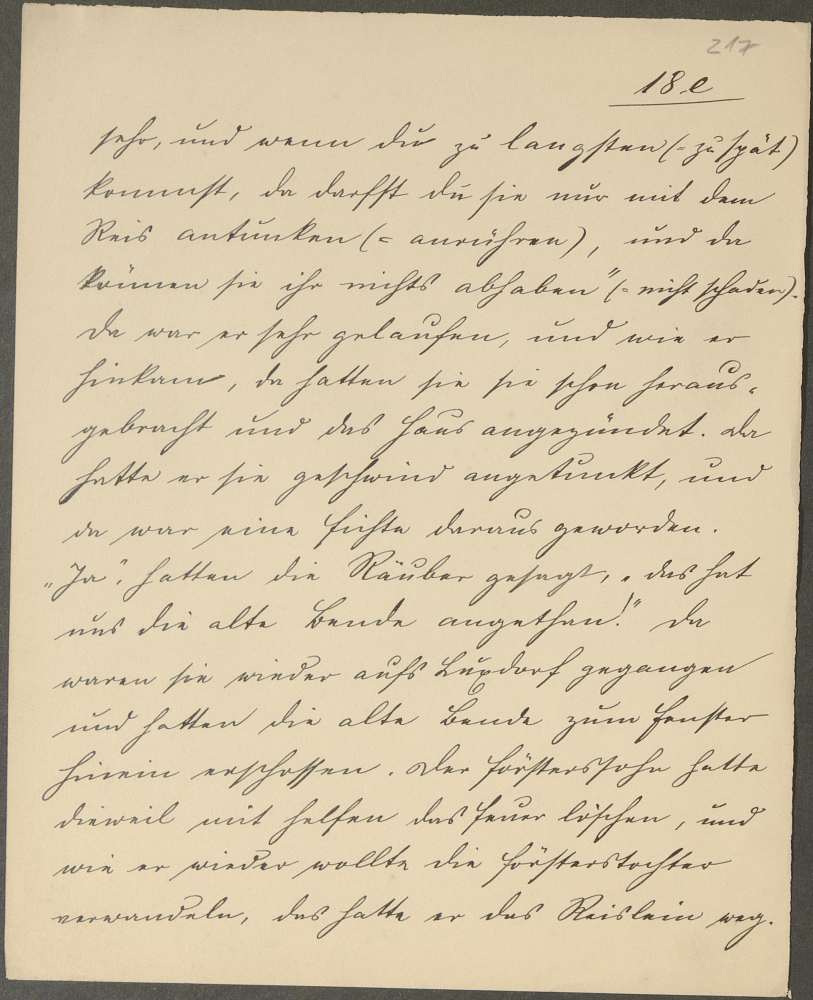 217
18 e
sehr, und wenn du zu langsten (= zu spät)
kommst, da darfst du sie nur mit dem
Reis antunken (= anrühren), und da
können sie ihr nichts abhaben" (= nicht schaden).
Da war er sehr gelaufen, und wie er
hinkam, da hatten sie sie schon heraus-
gebracht und das Haus angezündet. Da
hatte er sie geschwind angetunkt, und
da war eine Fichte daraus geworden.
„Ja", hatten die Räuber gesagt, „das hat
uns die alte Bende angethan!" Da
waren sie wieder aufs Luxdorf gegangen
und hatten die alte Bende zum Fenster
hinein erschossen. Der Förstersohn hatte
dieweil mit helfen das Feuer löschen, und
wie er wieder wollte die Förstertochter
verwandeln, das hatte er das Reislein weg.